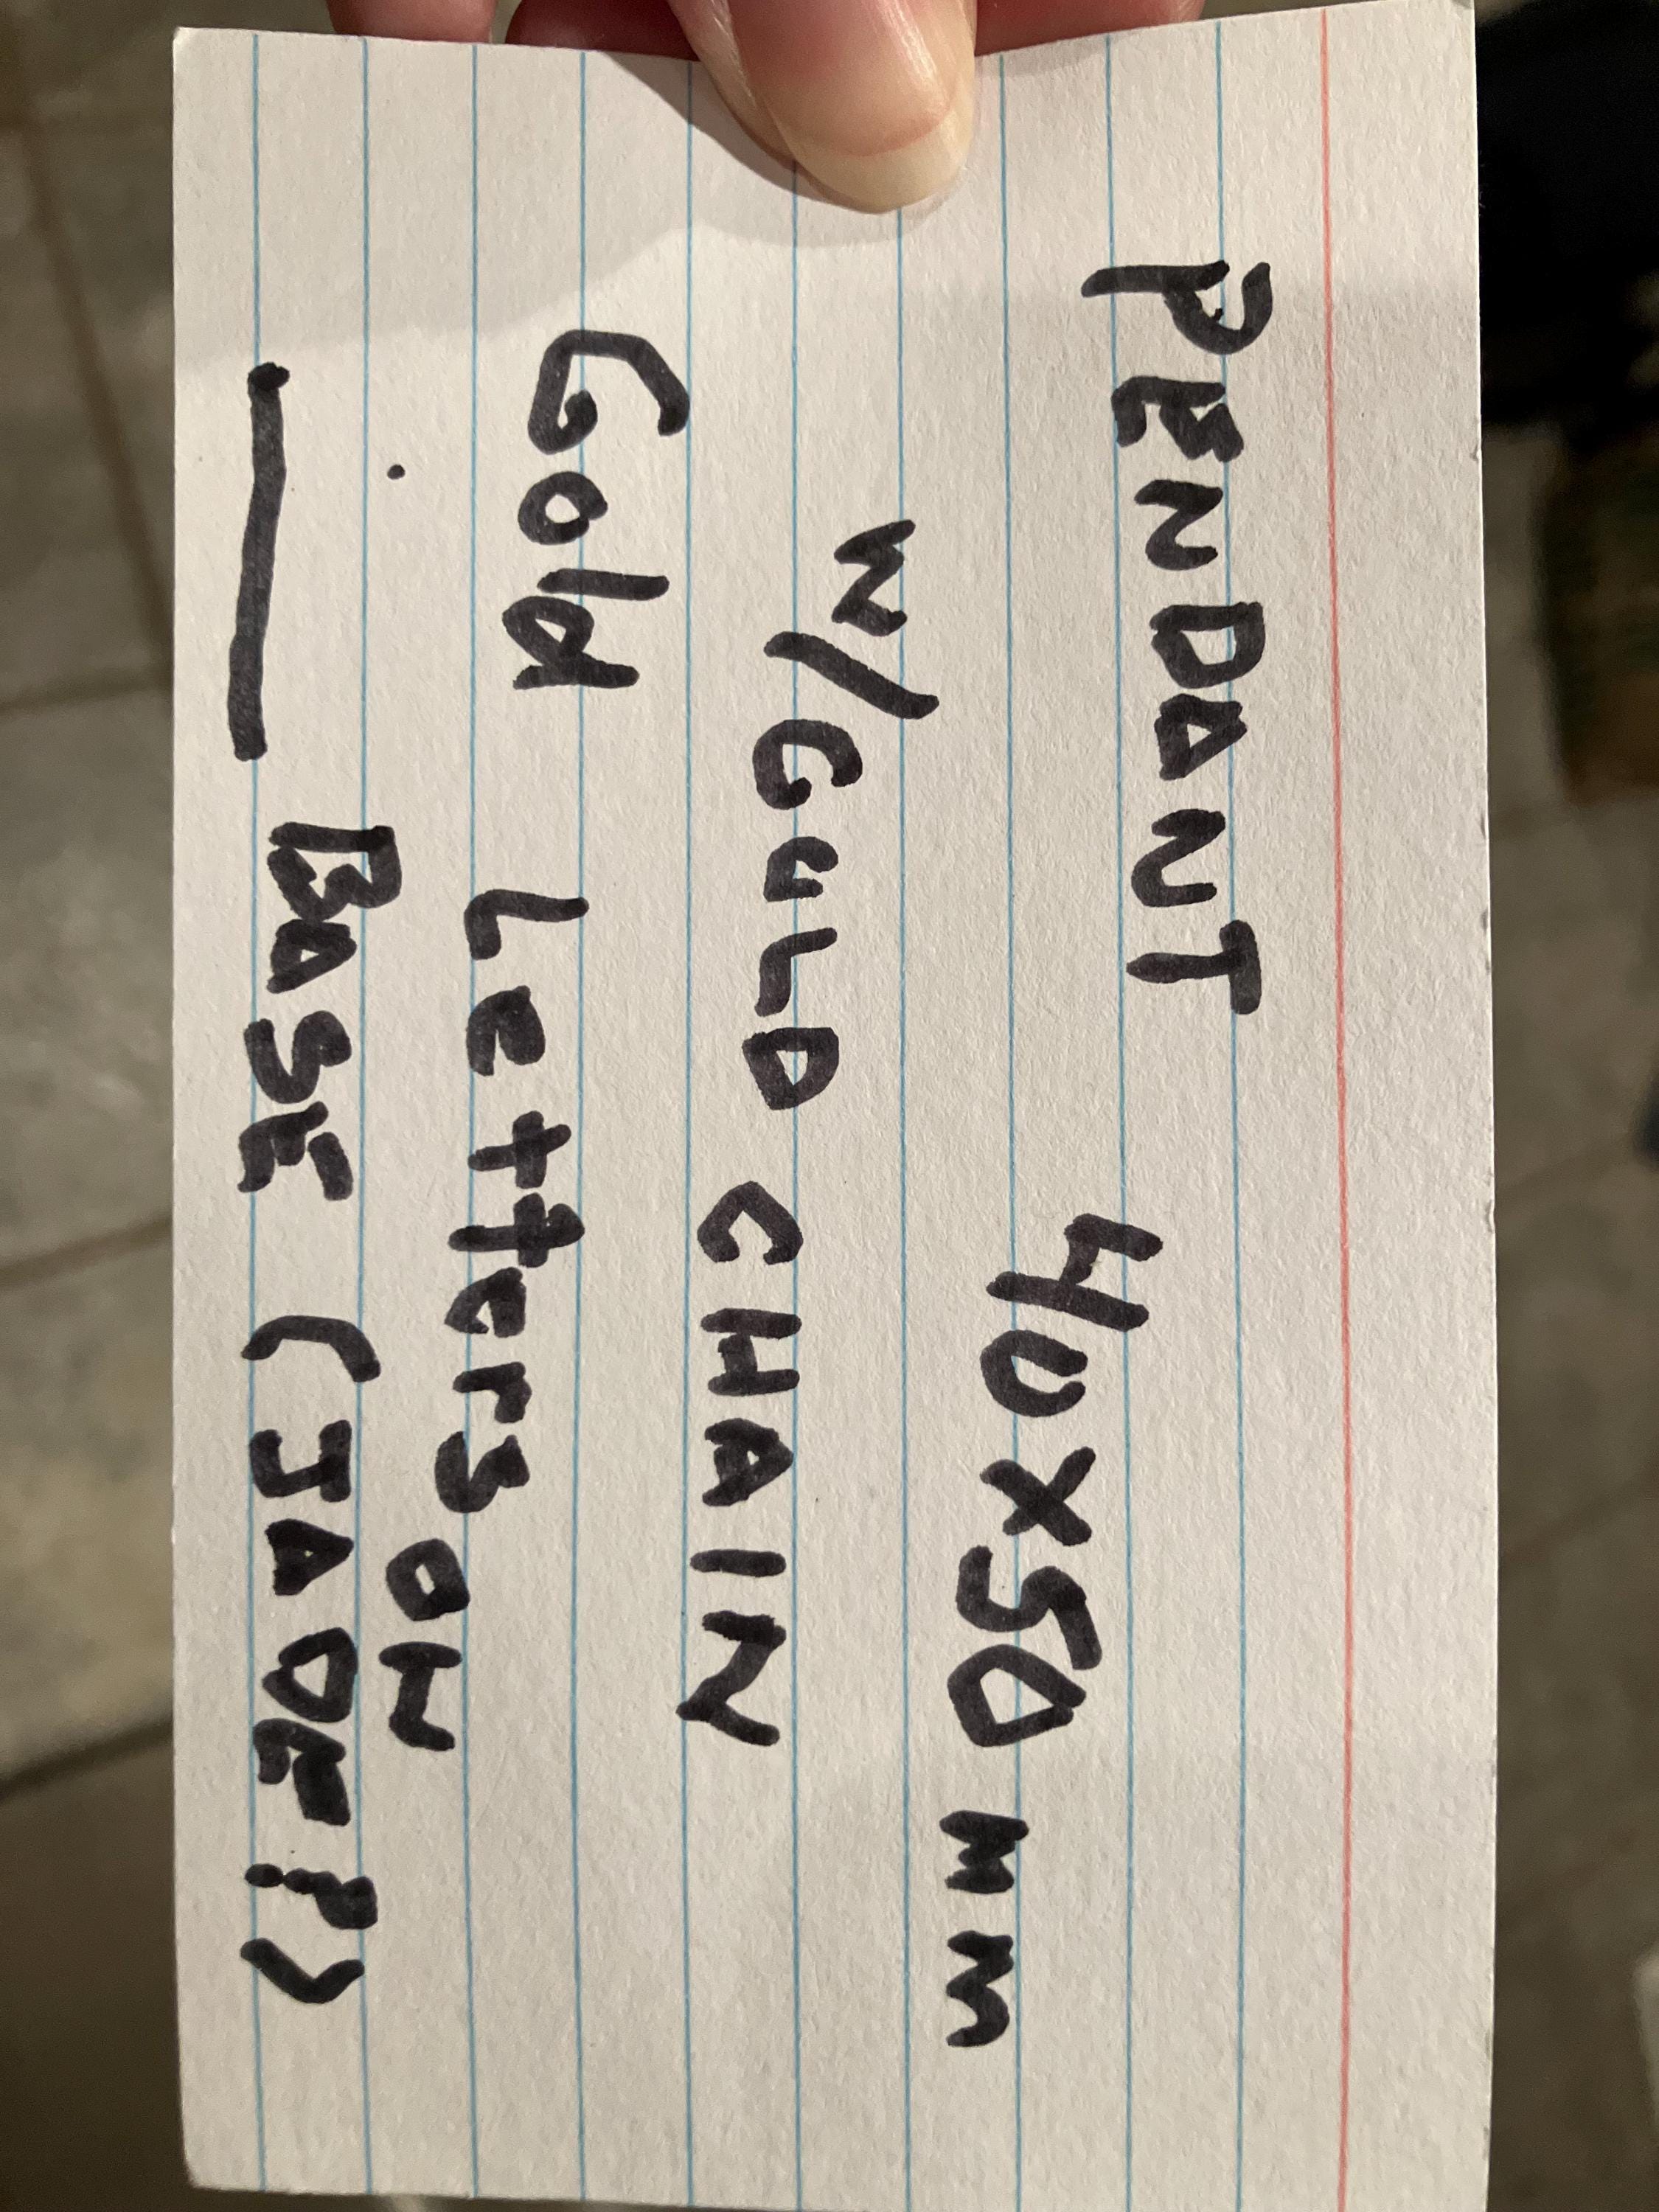 PENDANT 40x50 mm
W/GOLD CHAIN
Gold Letters on
___ BASE (JADE?)